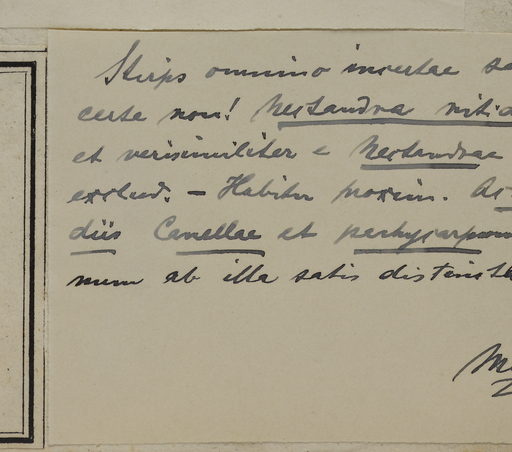 Stirps omnino incertae se
certe non! Nectandra nitid
et verisimiliter e Nectandrae
exclud. – Habitu proxim. Ac
diis Canellae et pachycarp
num ab illa satis distincta
M